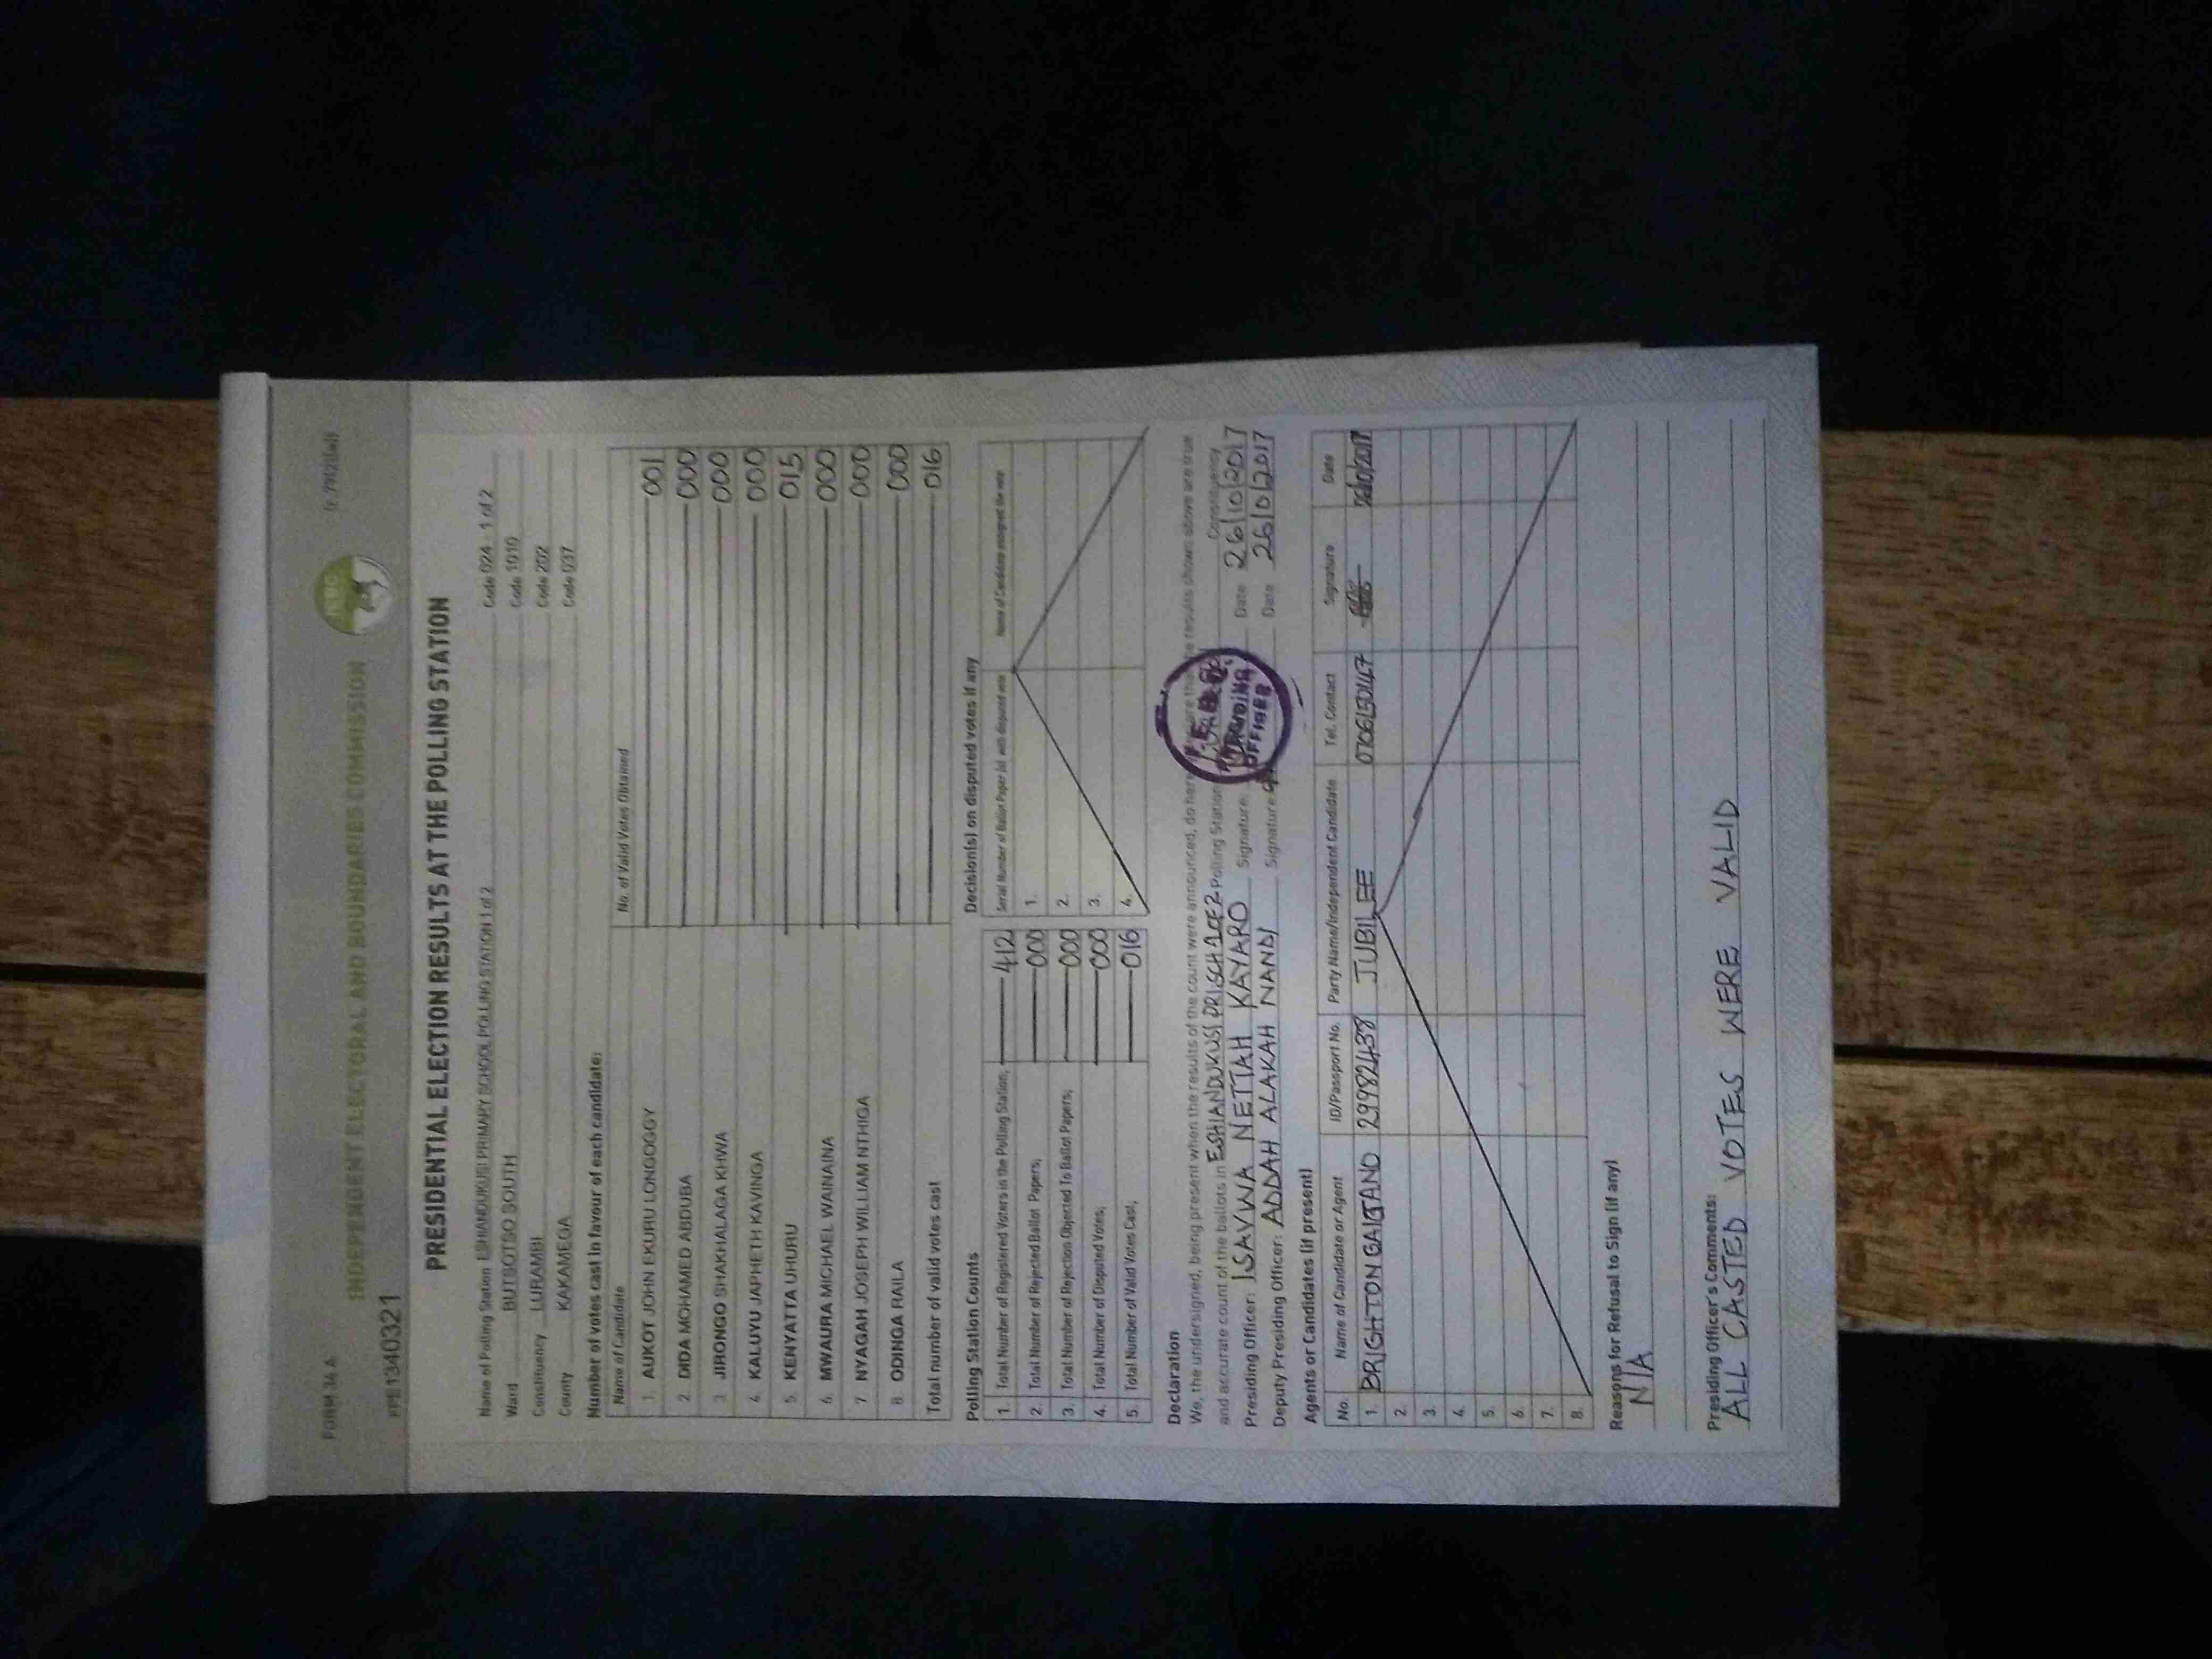 FORM 34 A
INDEPENDENT ELECTORAL AND BOUNDARIES COMMISSION
PRESIDENTIAL ELECTION RESULTS AT THE POLLING STATION
Name of Polling Station ESHIANDUKUSI PRIMARY SCHOOL POLLING STATION 1 of 2 Code 024 - 1 of 2
Ward BUTSOTSO SOUTH Code 1010
Constituency LURAMBI Code 202
County KAKAMEGA Code 037
Number of votes cast in favour of each candidate:
Name of Candidate No. of Valid Votes Obtained
1. AUKOT JOHN EKURU LONGOGGY 001
2. DIDA MOHAMED ABDUBA 000
3 JIRONGO SHAKHALAGA KHWA 000
4. KALUYU JAPHETH KAVINGA 000
5. KENYATTA UHURU 015
6. MWAURA MICHAEL WAINAINA 000
7 NYAGAH JOSEPH WILLIAM NTHIGA 000
8 ODINGA RAILA 000
Total number of valid votes cast 016
Polling Station Counts
1. Total Number of Registered Voters in the Polling Station; 412
2. Total Number of Rejected Ballot Papers; 000
3. Total Number of Rejection Objected To Ballot Papers; 000
4. Total Number of Disputed Votes; 000
5. Total Number of Valid Votes Cast; 016
Decision(s) on disputed votes if any
Serial Number of Ballot Paper (s) with disputed vote Name of Candidate assigned the vote
1.
2.
3.
4.
Declaration
We, the undersigned, being present when the results of the count were announced, do hereby declare that the results shown above are true
and accurate count of the ballots in ESHIANDUKUSI PRI SCH 1 OF 2 Polling Station Constituency
Presiding Officer: ISAVWA NETTAH KAYARO Signature: Date 26/10/2017
Deputy Presiding Officer: ADDAH ALAKAH NANDI Signature Date 26/10/2017
PRESIDING OFFICER
Agents or Candidates (if present)
No. Name of Candidate or Agent ID/Passport No. Party Name/Independent Candidate Tel. Contact Signature Date
1. BRIGHTON 29982438 JUBILEE
2.
3.
4.
5.
6.
7.
8.
Reasons for Refusal to Sign (if any)
N/A
Presiding Officer's Comments:
ALL CASTED VOTES WERE VALID